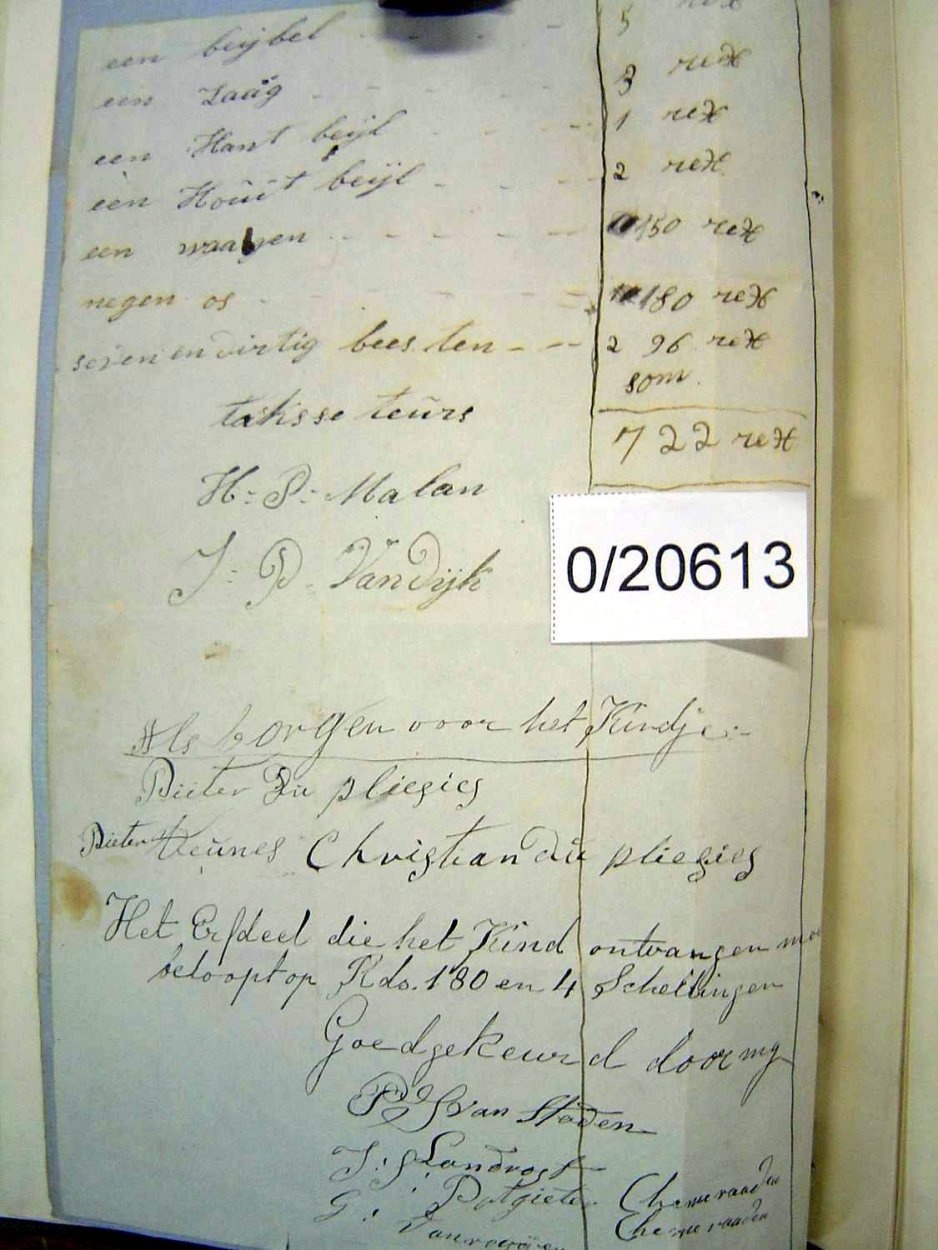 een beijbel - - - - 5 rex
een Zaag - - - - 3 rex
een Hant beijl - - - - 1 rex
een Hoüt beijl - - - - 2 rex
een waagen - - - - 150 rex
negen os - - - - 180 rex
seven en virtig beesten - - - 296 rex
som
taksse teürs 722 rex
H: P: Malan
J: P: Van Dijk
0/20613
Als borgen voor het Kindje:-
Pieter Dü pliesies
Pieter Teünes Christian dü pliesies
Het Erfdeel die het Kind ontvangen
beloopt op Rds. 180 en 4 Schellingen
Goedgekeurd door my
van Staden
Landrost
Potgieter